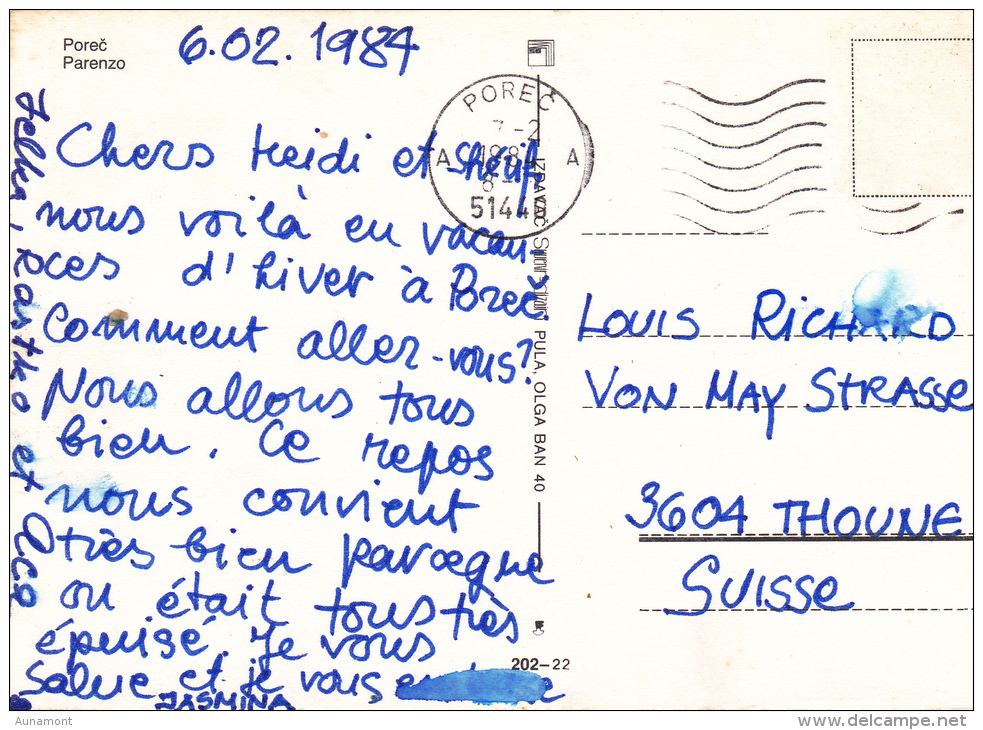 Poreč
Parenzo
6.02.1984
Chers Heidi et
nous voilà en vacan-
ces d'hiver à Poreč.
Comment allez-vous?
Nous allons tous
bien. Ce repos
nous convient
très bien parceque
on était tous très
épuisé. Je vous
salue et je vous
JASMINA
Rastko et
POREČ
7-2
1984
8
A A
51440
PULA, OLGA BAN 40
202-22
LOUIS RICHARD
VON MAY STRASSE
3604 THOUNE
SUISSE
Aunamont
www.delcampe.net